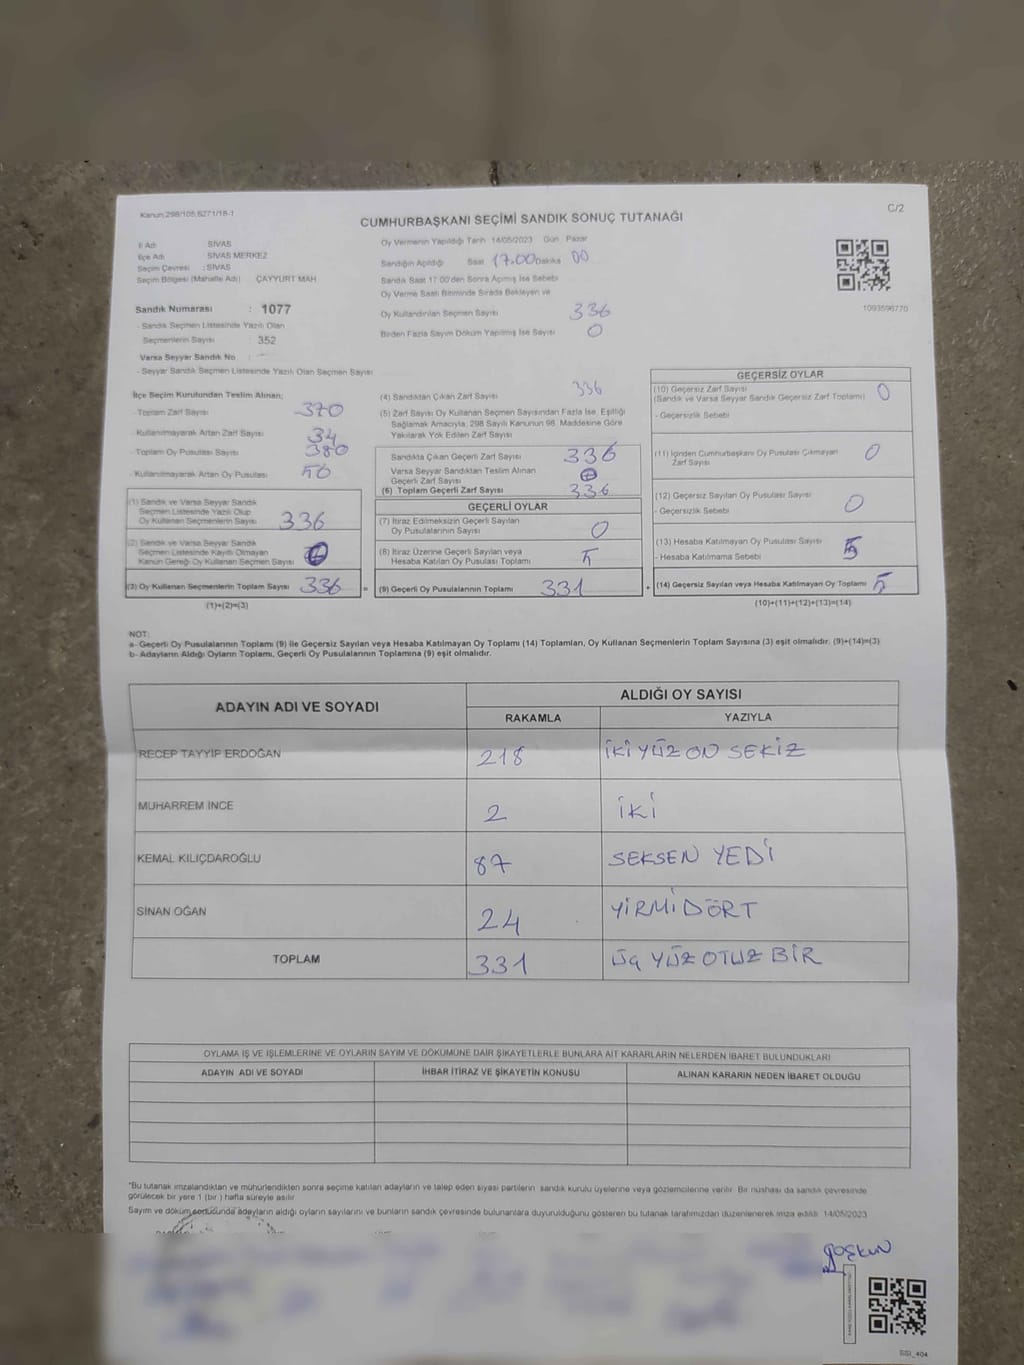 Kanun:298/105,6271/18-1
C/2
CUMHURBAŞKANI SEÇİMİ SANDIK SONUÇ TUTANAĞI
İl Adı SİVAS
İlçe Adı SİVAS MERKEZ
Seçim Çevresi : SİVAS
Seçim Bölgesi (Mahalle Adı) ÇAYYURT MAH
Sandık Numarası : 1077
- Sandık Seçmen Listesinde Yazılı Olan
Seçmenlerin Sayısı 352
Varsa Seyyar Sandık No :
- Seyyar Sandık Seçmen Listesinde Yazılı Olan Seçmen Sayısı
Oy Vermenin Yapıldığı Tarih 14/05/2023 Gün Pazar
Sandığın Açıldığı Saat 17.00 Dakika 00
Sandık Saat 17:00'den Sonra Açılmış İse Sebebi
Oy Verme Saati Bitiminde Sırada Bekleyen ve
Oy Kullandırılan Seçmen Sayısı 336
Birden Fazla Sayım Döküm Yapılmış İse Sayısı 0
1093596770
İlçe Seçim Kurulundan Teslim Alınan;
- Toplam Zarf Sayısı 370
- Kullanılmayarak Artan Zarf Sayısı 34
- Toplam Oy Pusulası Sayısı 380
- Kullanılmayarak Artan Oy Pusulası
(1) Sandık ve Varsa Seyyar Sandık
Seçmen Listesinde Yazılı Olup
Oy Kullanan Seçmenlerin Sayısı 336
(2) Sandık ve Varsa Seyyar Sandık
Seçmen Listesinde Kayıtlı Olmayan
Kanun Gereği Oy Kullanan Seçmen Sayısı
(3) Oy Kullanan Seçmenlerin Toplam Sayısı 336 =
(1)+(2)=(3)
(4) Sandıktan Çıkan Zarf Sayısı 336
(5) Zarf Sayısı Oy Kullanan Seçmen Sayısından Fazla İse, Eşitliği
Sağlamak Amacıyla, 298 Sayılı Kanunun 98. Maddesine Göre
Yakılarak Yok Edilen Zarf Sayısı
Sandıkta Çıkan Geçerli Zarf Sayısı 336
Varsa Seyyar Sandıktan Teslim Alınan
Geçerli Zarf Sayısı
(6) Toplam Geçerli Zarf Sayısı 336
GEÇERLİ OYLAR
(7) İtiraz Edilmeksizin Geçerli Sayılan
Oy Pusulalarının Sayısı 0
(8) İtiraz Üzerine Geçerli Sayılan veya
Hesaba Katılan Oy Pusulası Toplamı 5
(9) Geçerli Oy Pusulalarının Toplamı 331 +
GEÇERSİZ OYLAR
(10) Geçersiz Zarf Sayısı
(Sandık ve Varsa Seyyar Sandık Geçersiz Zarf Toplamı) 0
- Geçersizlik Sebebi
(11) İçinden Cumhurbaşkanı Oy Pusulası Çıkmayan
Zarf Sayısı 0
(12) Geçersiz Sayılan Oy Pusulası Sayısı
- Geçersizlik Sebebi 0
(13) Hesaba Katılmayan Oy Pusulası Sayısı
- Hesaba Katılmama Sebebi 5
(14) Geçersiz Sayılan veya Hesaba Katılmayan Oy Toplamı 5
(10)+(11)+(12)+(13)=(14)
NOT:
a- Geçerli Oy Pusulalarının Toplamı (9) ile Geçersiz Sayılan veya Hesaba Katılmayan Oy Toplamı (14) Toplamları, Oy Kullanan Seçmenlerin Toplam Sayısına (3) eşit olmalıdır. (9)+(14)=(3)
b- Adayların Aldığı Oyların Toplamı, Geçerli Oy Pusulalarının Toplamına (9) eşit olmalıdır.
ADAYIN ADI VE SOYADI
ALDIĞI OY SAYISI
RAKAMLA YAZIYLA
RECEP TAYYİP ERDOĞAN 218 İKİ YÜZ ON SEKİZ
MUHARREM İNCE 2 İKİ
KEMAL KILIÇDAROĞLU 87 SEKSEN YEDİ
SİNAN OĞAN 24 YİRMİ DÖRT
TOPLAM 331 ÜÇ YÜZ OTUZ BİR
OYLAMA İŞ VE İŞLEMLERİNE VE OYLARIN SAYIM VE DÖKÜMÜNE DAİR ŞİKAYETLERLE BUNLARA AİT KARARLARIN NELERDEN İBARET BULUNDUKLARI
ADAYIN ADI VE SOYADI İHBAR İTİRAZ VE ŞİKAYETİN KONUSU ALINAN KARARIN NEDEN İBARET OLDUĞU
*Bu tutanak imzalandıktan ve mühürlendikten sonra seçime katılan adayların ve talep eden siyasi partilerin sandık kurulu üyelerine veya gözlemcilerine verilir. Bir nüshası da sandık çevresinde
görülecek bir yere 1 (bir ) hafta süreyle asılır
Sayım ve döküm sonucunda adayların aldığı oyların sayılarını ve bunların sandık çevresinde bulunanlara duyurulduğunu gösteren bu tutanak tarafımızdan düzenlenerek imza edildi. 14/05/2023
SSI_404